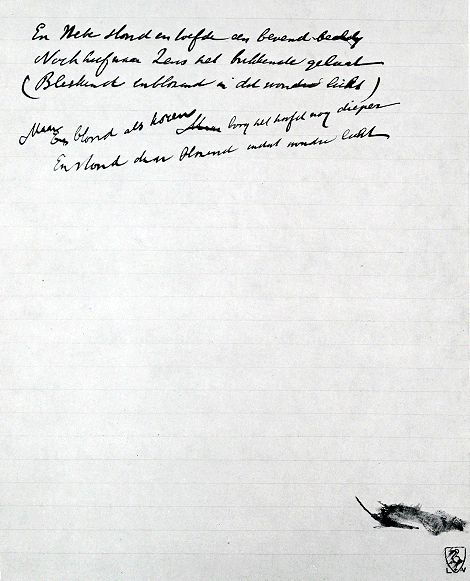 En Hebe stond en loefde een bevend
Noch hief naar Zeus het brekende gelaat
(Bleekend en blozend in dat wondre licht)
Maar En blond als koren boog het hoofd nog dieper
En stond daar blozend in dat wondre licht